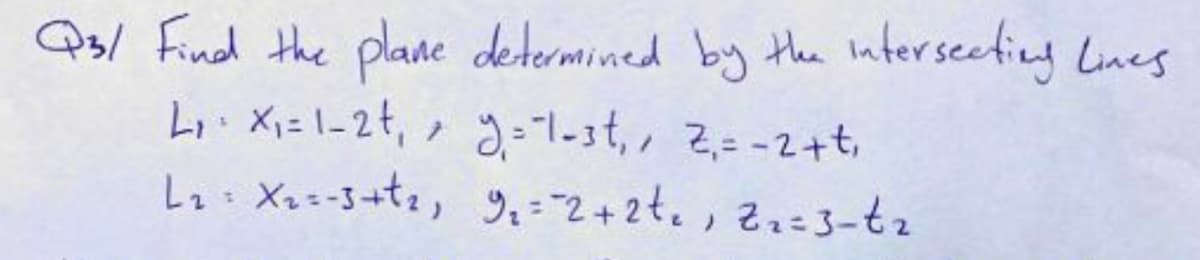 Q3/ Find the plane determined by the intersecting Lines
L₁: X₁=1-2t₁, y₁=⁻1-3t₁, Z₁=-2+t₁
L₂: X₂=-3+t₂, y₂=⁻2+2t₂, Z₂=3-t₂